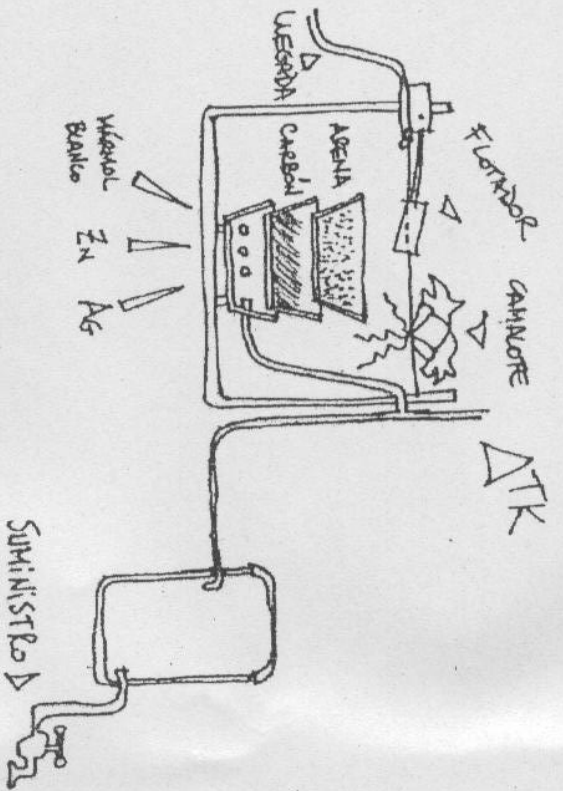 LLEGADA
FLOTADOR
CAMALOTE
ΔTK
ARENA
CARBÓN
MÁRMOL
BLANCO
ZN
AG
SUMINISTRO